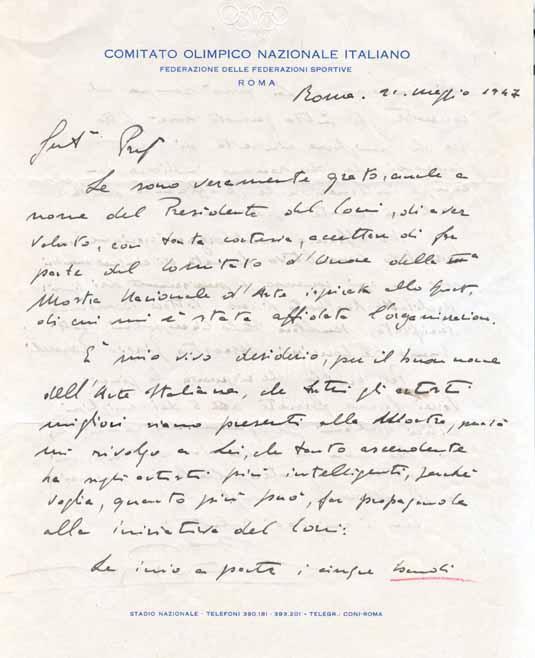 COMITATO OLIMPICO NAZIONALE ITALIANO
FEDERAZIONE DELLE FEDERAZIONI SPORTIVE
ROMA
Roma. 21. maggio 1947
Gent. Prof
Le sono veramente grato, anche a
nome del Presidente del Coni, di aver
voluto, con tanta cortesia, accettare di far
parte del Comitato d'Onore della IIIa
Mostra Nazionale d'Arte ispirata allo Sport,
di cui mi è stata affidata l'organizzazione.
È mio vivo desiderio, per il buon nome
dell'Arte Italiana, che tutti gli artisti
migliori siano presenti alla Mostra, perciò
mi rivolgo a Lei, che tanto ascendente
ha sugli artisti più intelligenti, perché
voglia, quanto più può, far propaganda
alla iniziativa del Coni.
Le invio a parte i cinque bandi
STADIO NAZIONALE - TELEFONI 390.181 - 393.201 - TELEGR.: CONI-ROMA